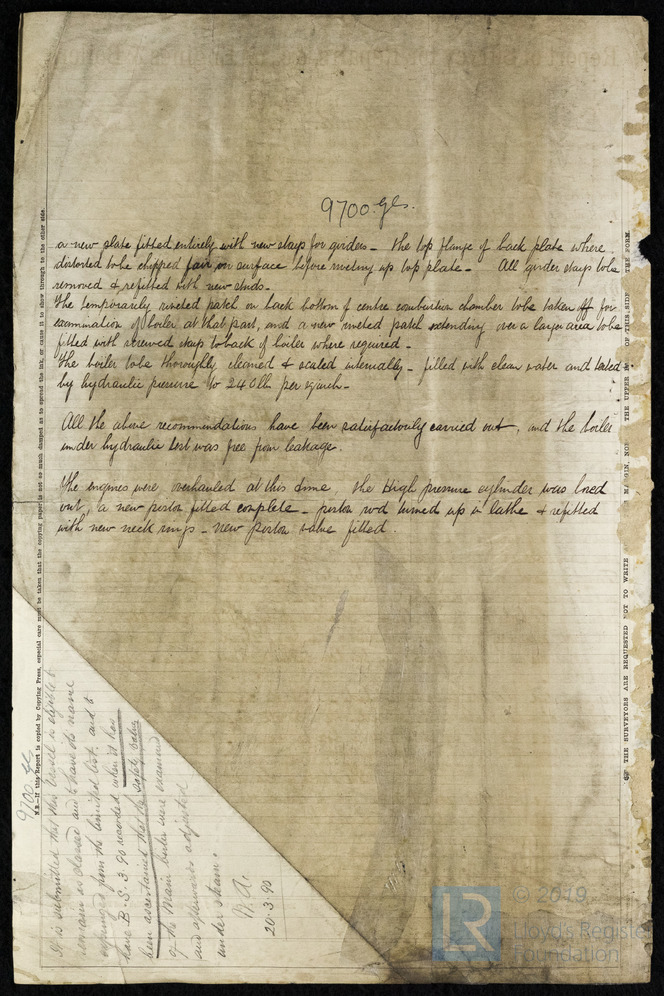 9700. Gls.
a new plate fitted entirely with new stays for girders - The top flange of back plate where
distorted to be chipped fair on surface before making up top plate - All girder stays to be
removed & refitted with new studs -
The temporarily riveted patch on back bottom of centre combustion chamber to be taken off for
examination of boiler at that part, and a new riveted patch extending over a larger area to be
fitted with screwed stays to back of boiler where required -
The boiler to be thoroughly cleaned & scaled internally - filled with clean water and tested
by hydraulic pressure to 240 lb per sq inch -
All the above recommendations have been satisfactorily carried out, and the boiler
under hydraulic test was free from leakage.
The engines were overhauled at this time. The High pressure cylinder was bored
out, a new piston fitted complete - piston rod turned up in lathe & refitted
with new neck rings - new piston valve fitted.
N.B.—If this Report is copied by Copying Press, especial care must be taken that the copying paper is not so much damped as to spread the ink, or cause it to show through to the other side.
THE SURVEYORS ARE REQUESTED NOT TO WRITE
THE UPPER
OF THIS SIDE
THE FORM
9700 Gls
It is submitted that this vessel is eligible to
remain as classed and to have its name
expunged from the limited list, and to
have B.S. 3.90 recorded when it has
been ascertained that the safety valves
of the Main boiler were examined
and afterwards adjusted
under steam.
20.3.90
LR
© 2019
Lloyd's Register
Foundation